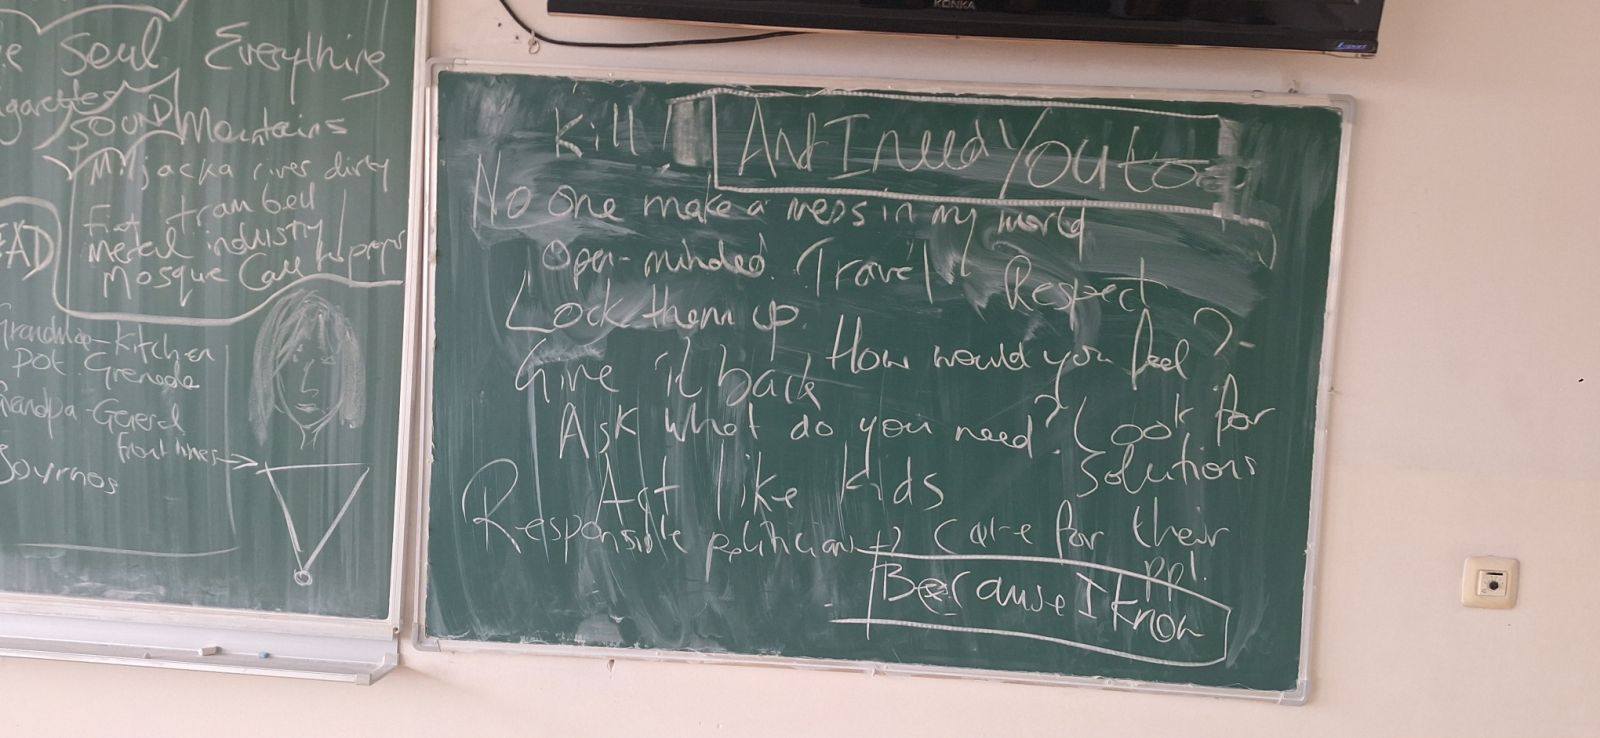 Soul Everything
SOUND Mountains
Miljacka river dirty
First tram bell
metal industry
Mosque Call to prayer
Grandma-Kitchen
Pot. Grenade
Grandpa-General
Front lines
KONKA
Kill!
And I need You too
No one make a mess in my world
Open-minded. Travel Respect
Lock them up.
How would you feel?
Give it back
Ask What do you need? Look for
Solutions
Act like kids
Responsible politicians care for their
ppl.
Because I know